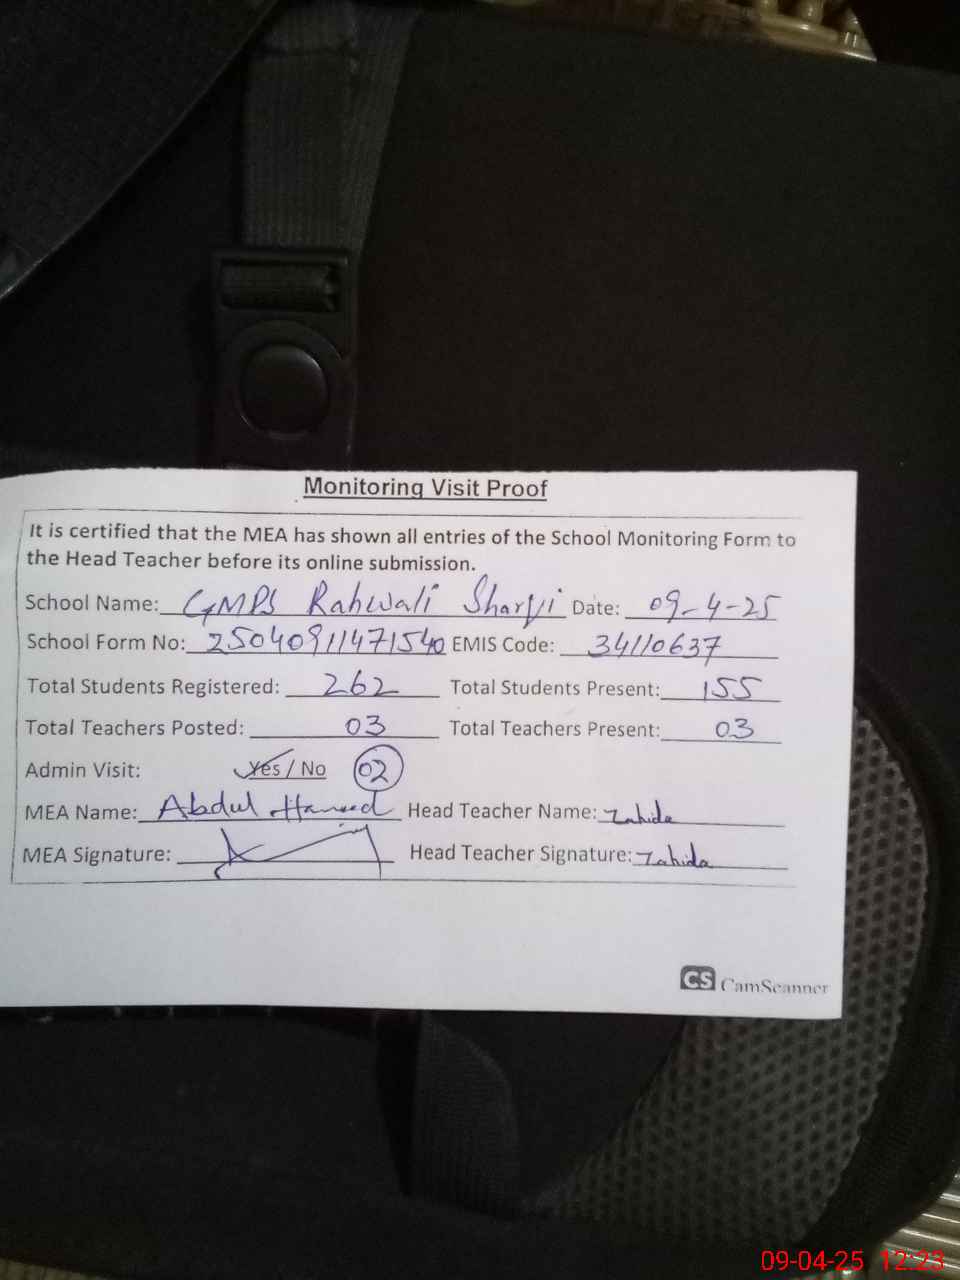 Monitoring Visit Proof
It is certified that the MEA has shown all entries of the School Monitoring Form to
the Head Teacher before its online submission.
School Name: GMPS Rahwali Sharfi Date: 09-4-25
School Form No: 25040911471540 EMIS Code: 34110637
Total Students Registered: 262 Total Students Present: 155
Total Teachers Posted: 03 Total Teachers Present: 03
Admin Visit: Yes / No 02
MEA Name: Abdul Hameed Head Teacher Name: Zahida
MEA Signature: Head Teacher Signature: Zahida
CS CamScanner
09-04-25 12:23